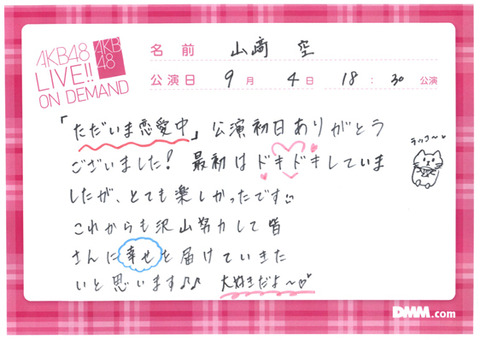 AKB48
LIVE!!
ON DEMAND
AKB
48
名前 山﨑 空
公演日 9月 4日 18:30公演
「ただいま恋愛中」公演初日ありがとう
ございました! 最初はドキドキしていま
したが、とても楽しかったです
これからも沢山努力して皆
さんに幸せを届けていきた
いと思います♪♪ 大好きだよ〜♡
DMM.com